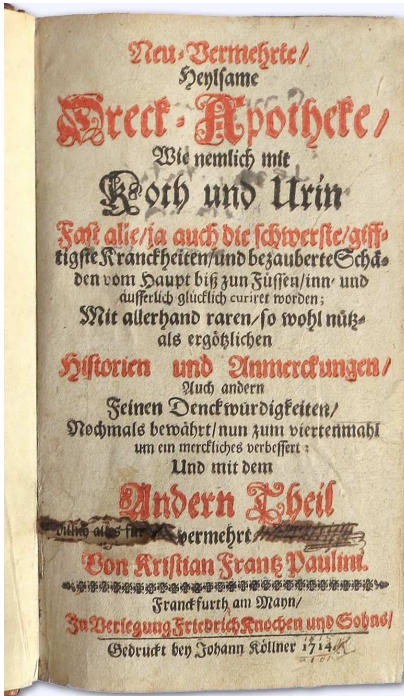 Neu-Vermehrte/
Heylsame
Dreck-Apotheke/
Wie nemlich mit
Koth und Urin
Fast alle/ja auch die schwerste/giff-
tigste Kranckheiten/und bezauberte Schä-
den vom Haupt biß zun Füssen/inn- und
äusserlich glücklich curiret worden;
Mit allerhand raren/so wohl nütz-
als ergötzlichen
Historien und Anmerckungen/
Auch andern
Feinen Denckwürdigkeiten/
Nochmals bewährt/nun zum viertenmahl
um ein merckliches verbessert:
Und mit dem
Andern Theil
vermehrt
Von Kristian Frantz Paulini.
Franckfurth am Mayn/
In Verlegung Friedrich Knochen und Sohns/
Gedruckt bey Johann Köllner 1714.